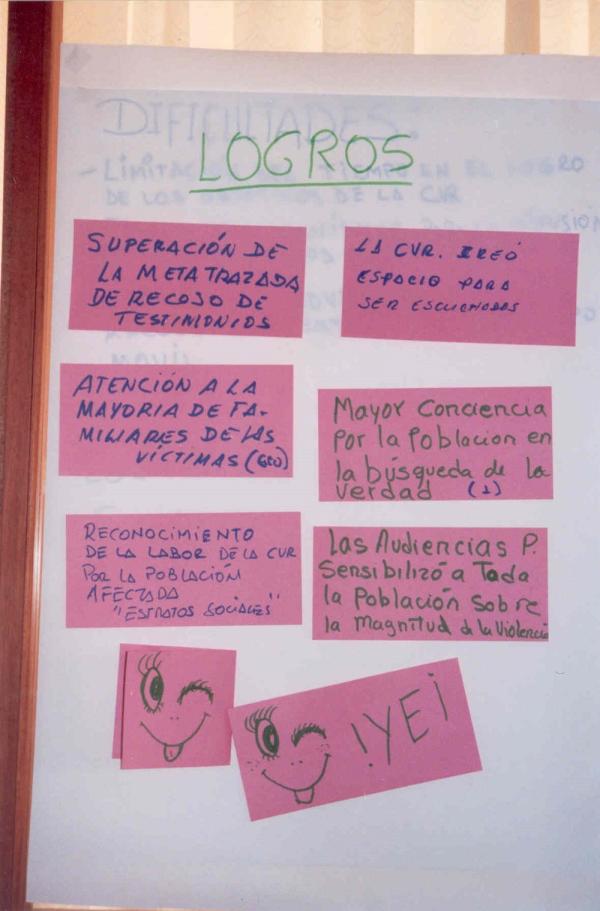 LOGROS
SUPERACIÓN DE
LA META TRAZADA
DE RECOJO DE
TESTIMONIOS
LA CVR. CREÓ
ESPACIO PARA
SER ESCUCHADOS
ATENCIÓN A LA
MAYORIA DE FA-
MILIARES DE LAS
VÍCTIMAS
Mayor Conciencia
por la Poblacion en
la búsqueda de la
verdad (1)
RECONOCIMIENTO
DE LA LABOR DE LA CVR
POR LA POBLACIÓN
AFECTADA
"ESTRATOS SOCIALES"
Las Audiencias P.
Sensibilizó a Toda
la Población Sobre
la Magnitud d la Violencia
!YE¡
DIFICULTADES:
- LIMITACIÓN TIEMPO EN EL LOGRO
DE LOS DE LA CVR